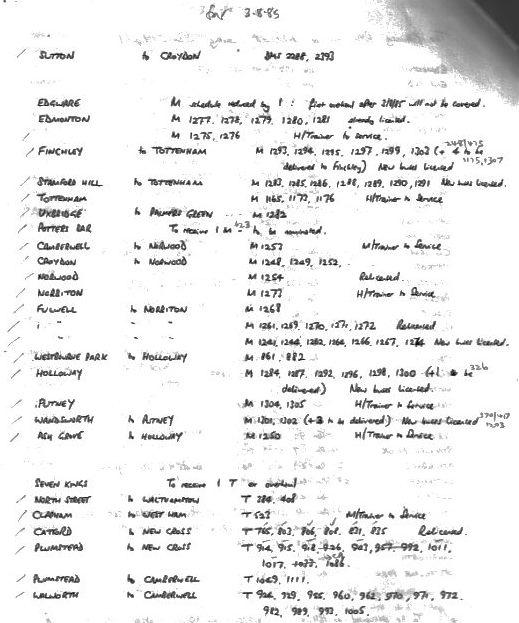 Sat 3-8-85
SUTTON to CROYDON DMS 2288, 2393
EDGWARE M schedule reduced by 1 : first overhaul after 2/8/85 will not be covered.
EDMONTON M 1277, 1278, 1279, 1280, 1281 already licensed.
M 1275, 1276 H/Trainer to service.
FINCHLEY to TOTTENHAM M 1293, 1294, 1295, 1297, 1299, 1303 (+ 4 to be
delivered to Finchley) New buses Licensed 1175, 1307
STAMFORD HILL to TOTTENHAM M 1283, 1285, 1286, 1288, 1289, 1290, 1291 New buses Licensed.
TOTTENHAM M 1165, 1173, 1176 H/Trainer to Service
UXBRIDGE to PALMERS GREEN M 1282
POTTERS BAR To receive 1 M to be nominated.
CAMBERWELL to NORWOOD M 1253 M/Trainer to Service
CROYDON to NORWOOD M 1248, 1249, 1252.
NORWOOD M 1254 Relicensed.
NORBITON M 1273 H/Trainer to Service
FULWELL to NORBITON M 1268
" " " M 1261, 1269, 1270, 1271, 1272 Relicensed
" " M 1241, 1244, 1262, 1264, 1266, 1267, 1274 New buses Licensed.
WESTBOURNE PARK to HOLLOWAY M 861, 882
HOLLOWAY M 1284, 1287, 1292, 1296, 1298, 1300 (+1 to be
delivered) New buses Licensed.
PUTNEY M 1304, 1305 H/Trainer to Service
WANDSWORTH to PUTNEY M 1301, 1302 (+3 to be delivered) New buses Licensed
ASH GROVE to HOLLOWAY M 1250 H/Trainer to Service
SEVEN KINGS To receive 1 T ex overhaul
NORTH STREET to WALTHAMSTOW T 284, 408
CLAPHAM to WEST HAM T 523 M/Trainer to Service
CATFORD to NEW CROSS T 765, 803, 806, 808, 831, 835 Relicensed.
PLUMSTEAD to NEW CROSS T 914, 915, 918, 926, 903, 957, 992, 1011,
1017, 1037, 1086.
PLUMSTEAD to CAMBERWELL T 1049, 1111.
WALWORTH to CAMBERWELL T 924, 929, 955, 960, 962, 970, 971, 972,
982, 989, 993, 1005.